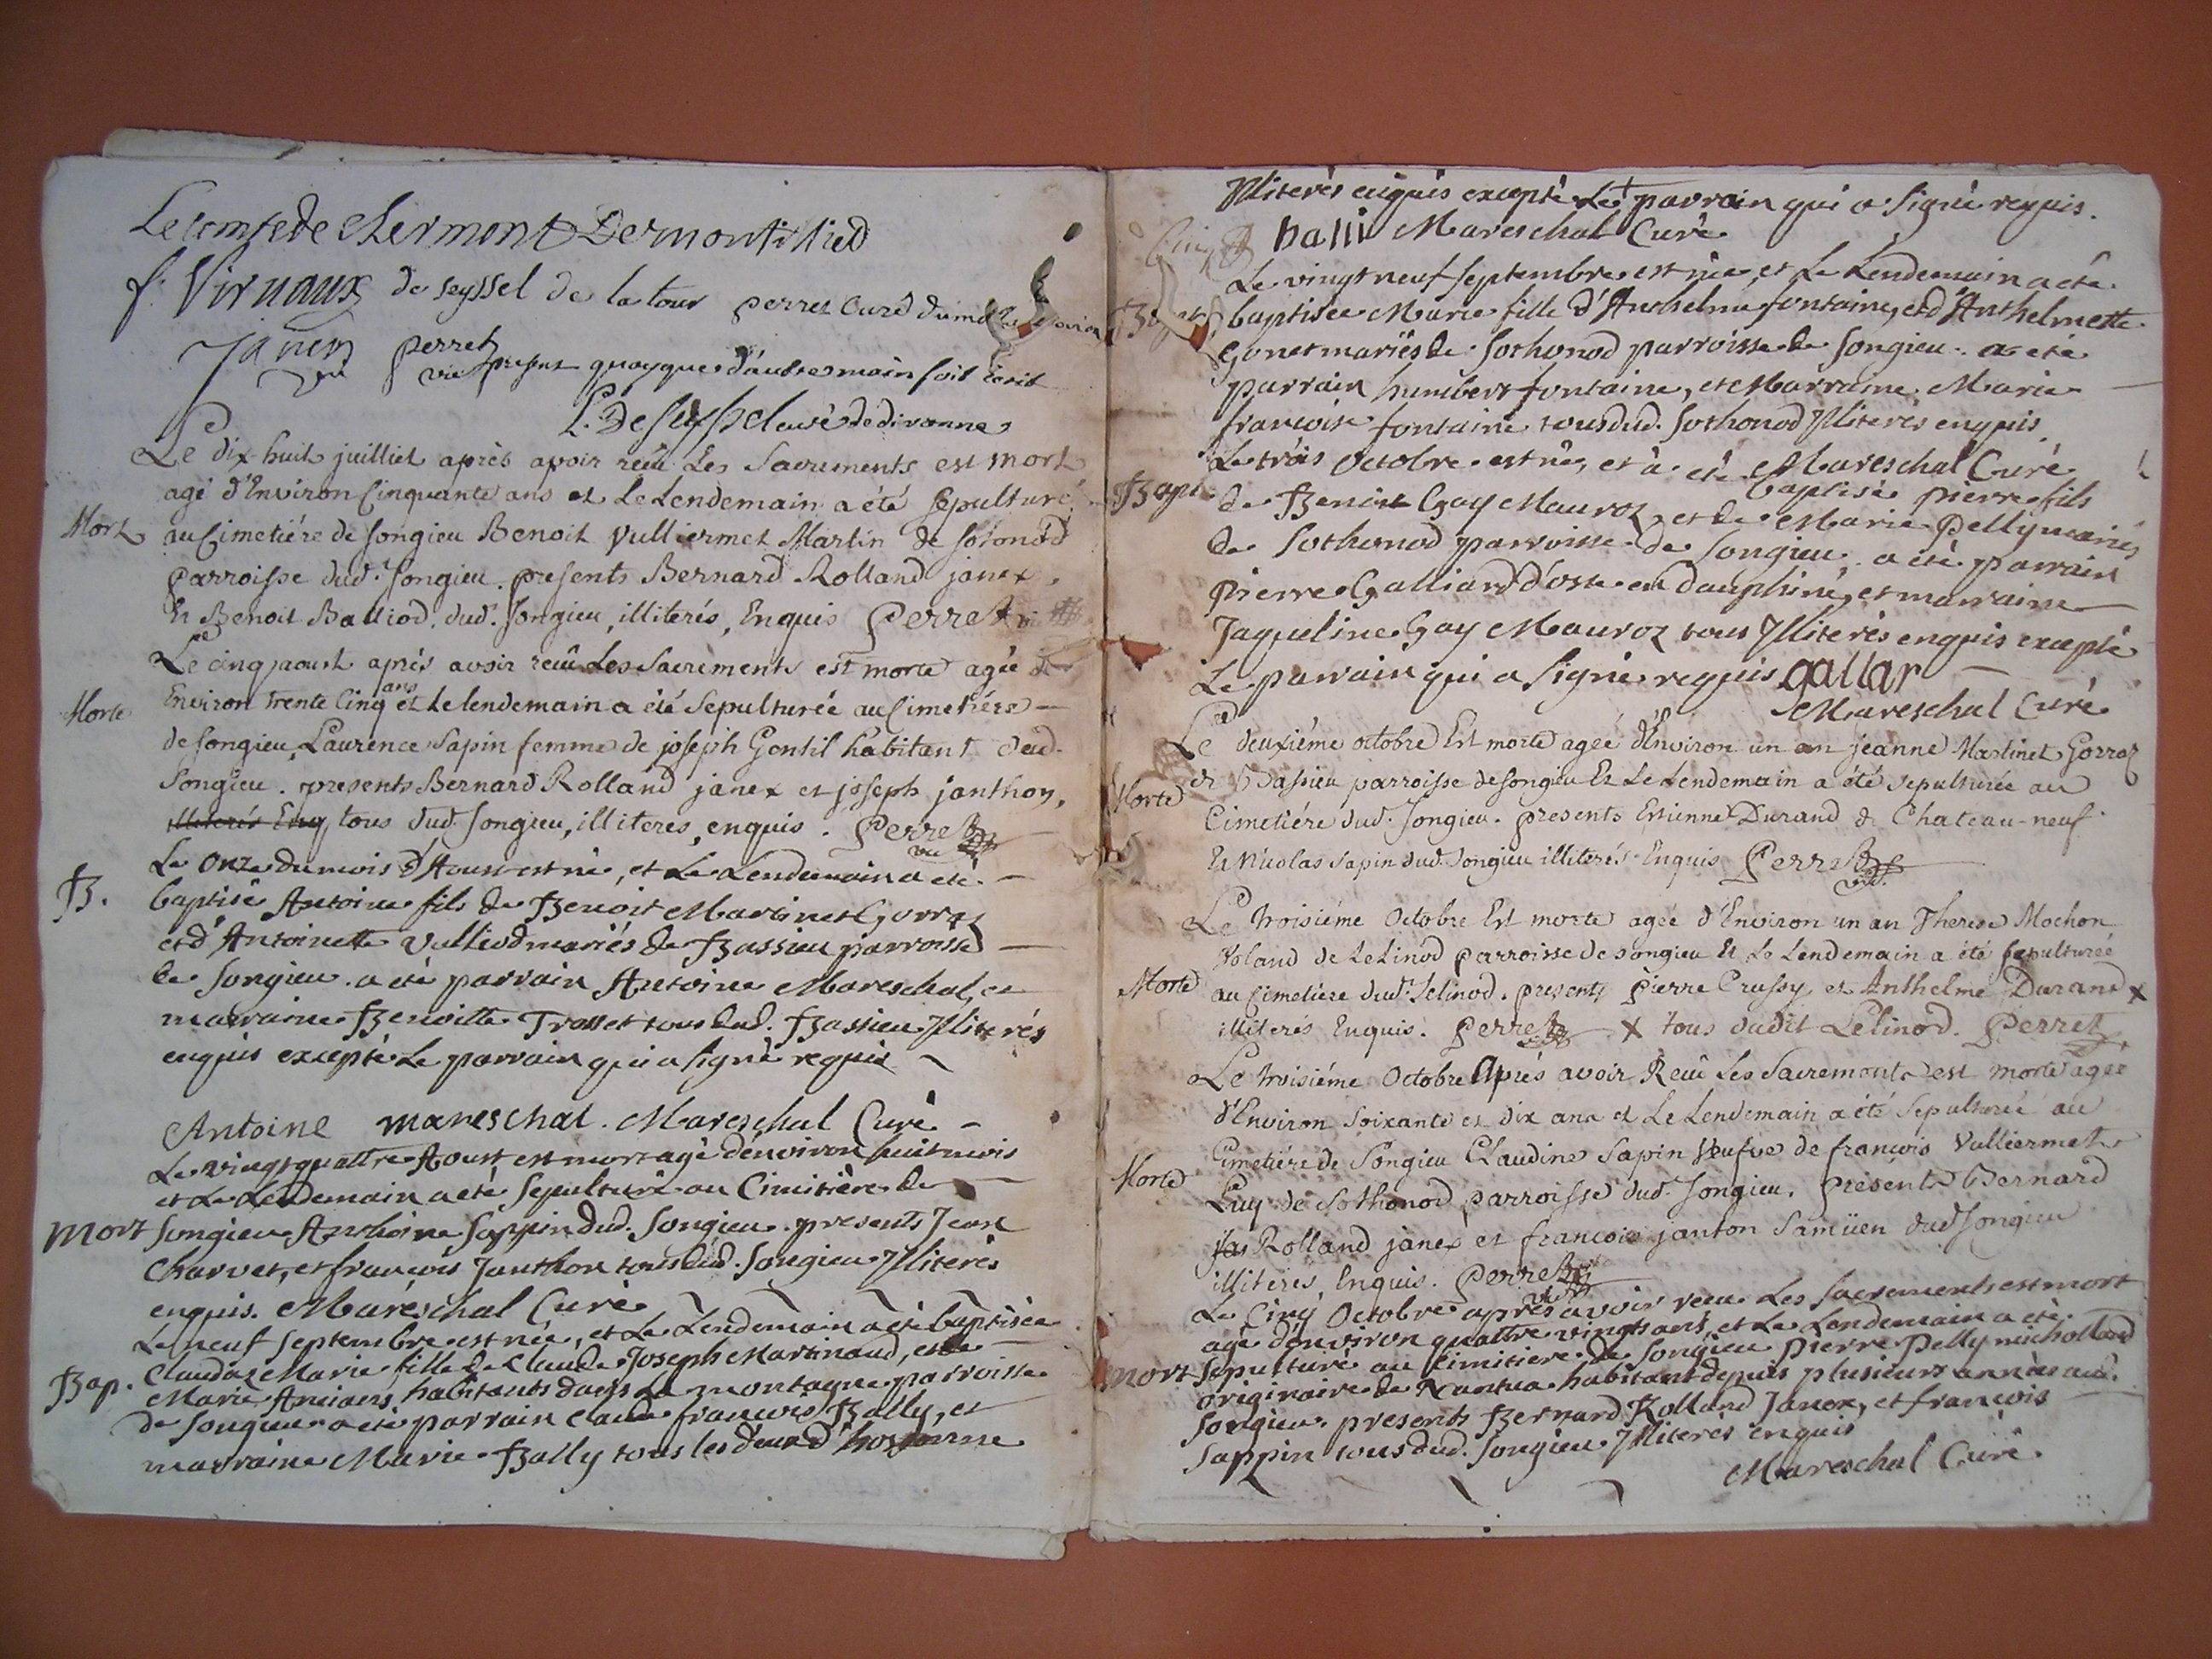 Le comte de Clermont
f. Viruaux de seyssel de la tour perret Curé
Janin perret
vic present quoyque d'autre main soit écrit
L. De Seyssel curé de divonne
Le dix huit juilliet après avoir reçû Les Sacrements est mort
agé d'Environ Cinquante ans et Le Lendemain a été sepulturé
Mort au Cimetiére de Songieu Benoit Vulliermet Martin de Sotonod
parroisse dud. Songieu. presents Bernard Rolland janex,
Et Benoit Balliod, dud. Songieu, illiterés, Enquis Perret vi
Le cinq aoust après avoir reçû Les Sacrements est morte agée de
Morte Environ trente Cinq ans et Le lendemain a été Sepulturée au Cimetiére
de Songieu, Laurence Sapin femme de joseph Gentil habitant dud.
Songieu. presents Bernard Rolland janex et joseph janthon,
illiterés Enq tous dud. Songieu, illiteres, enquis. Perret
vic
Le onze du mois d'Aoust est né, et Le Lendemain a eté
B. baptisé Antoine fils de Benoit Martinet Gorraz
et d'Antoinette Vulliod mariés de Bassieu parroisse
de Songieu. a eté parrain Antoine Mareschal, et
marraine Benoitte Trosset tous dud. Bassieu Illiterés
enquis excepté Le parrain qui a signé requis
Antoine mareschal. Mareschal Curé
Le vingt quattre Aoust est mort agé d'environ huit mois
et Le Lendemain a eté sepulturé au Cimitière de
mort Songieu Anthoine Sappin dud. Songieu. presents Jean
Charvet, et francois Janthon tous dud. Songieu Illiterés
enquis. Mareschal Curé
Le neuf septembre est née, et Le Lendemain a eté baptisée
Claudaz Marie fille de Claude Joseph Martinaud, et de
Bap. Marie Ancians habitants dans la montagne parroisse
de Songieu a eté parrain Claude francois Bally, et
marraine Marie Bally tous les deux d'hostonne
Illiterés enquis excepté Le parrain qui a signé requis.
balli Mareschal Curé
Le vingt neuf septembre est née, et Le Lendemain a eté
baptisée Marie fille d'Anthelme fontaine, et d'Anthelmette
Gonet mariés de Sothonod parroisse de Songieu. a eté
parrain humbert fontaine, et Marraine Marie
francoise fontaine tous dud. Sothonod Illiterés enquis
Mareschal Curé
Le trois Octobre est né, et à eté baptisé pierre fils
Bapt. de Benoit Gay Mauroz, et de Marie Pelly mariés
de Sothonod parroisse de Songieu. a eté parrain
Pierre Galliard d'oste en dauphiné, et marraine
Jaqueline Gay Mauroz tous Illiterés enquis excepté
Le parrain qui a signé requis gallar
Mareschal Curé
Le deuxiéme octobre Est morte agée d'Environ un an jeanne Martinet Gorraz
Morte de Bassieu parroisse de Songieu Et Le Lendemain a été sepulturée au
Cimetiére dud. Songieu. presents Estienne Durand de Chateau-neuf
Et Nicolas Sapin dud. Songieu illiterés Enquis Perret
vic.
Le troisiéme Octobre Est morte agée d'Environ un an Therese Mochon
Roland de Lelinod parroisse de Songieu Et Le Lendemain a été sepulturée
Morte au Cimetiere dud. Lelinod. presents Pierre Crussy et Anthelme Durand x
illiterés Enquis. Perret x tous dudit Lelinod. Perret
Le troisiéme Octobre Après avoir Reçû Les Sacrements est morte agée
d'Environ Soixante et dix ans et Le Lendemain a été Sepulturée au
Cimetiére de Songieu Claudine Sapin Veufve de francois Vulliermet
Morte Guy de Sothonod parroisse dud. Songieu. Presents Bernard
Rolland janex et francois janton Samüen dud Songieu
illiteres, Enquis. Perret
vic
Le Cinq Octobre après avoir reçu Les Sacrements est mort
agé d'environ quattre vingts ans, et Le Lendemain a eté
mort sepulturé au Cimitiere de Songieu Pierre Pelly micholland
originaire de Nantua habitant depuis plusieurs années aud.
Songieu. presents Bernard Rolland Janex, et francois
Sappin tous dud. Songieu Illiterés enquis
Mareschal Curé.